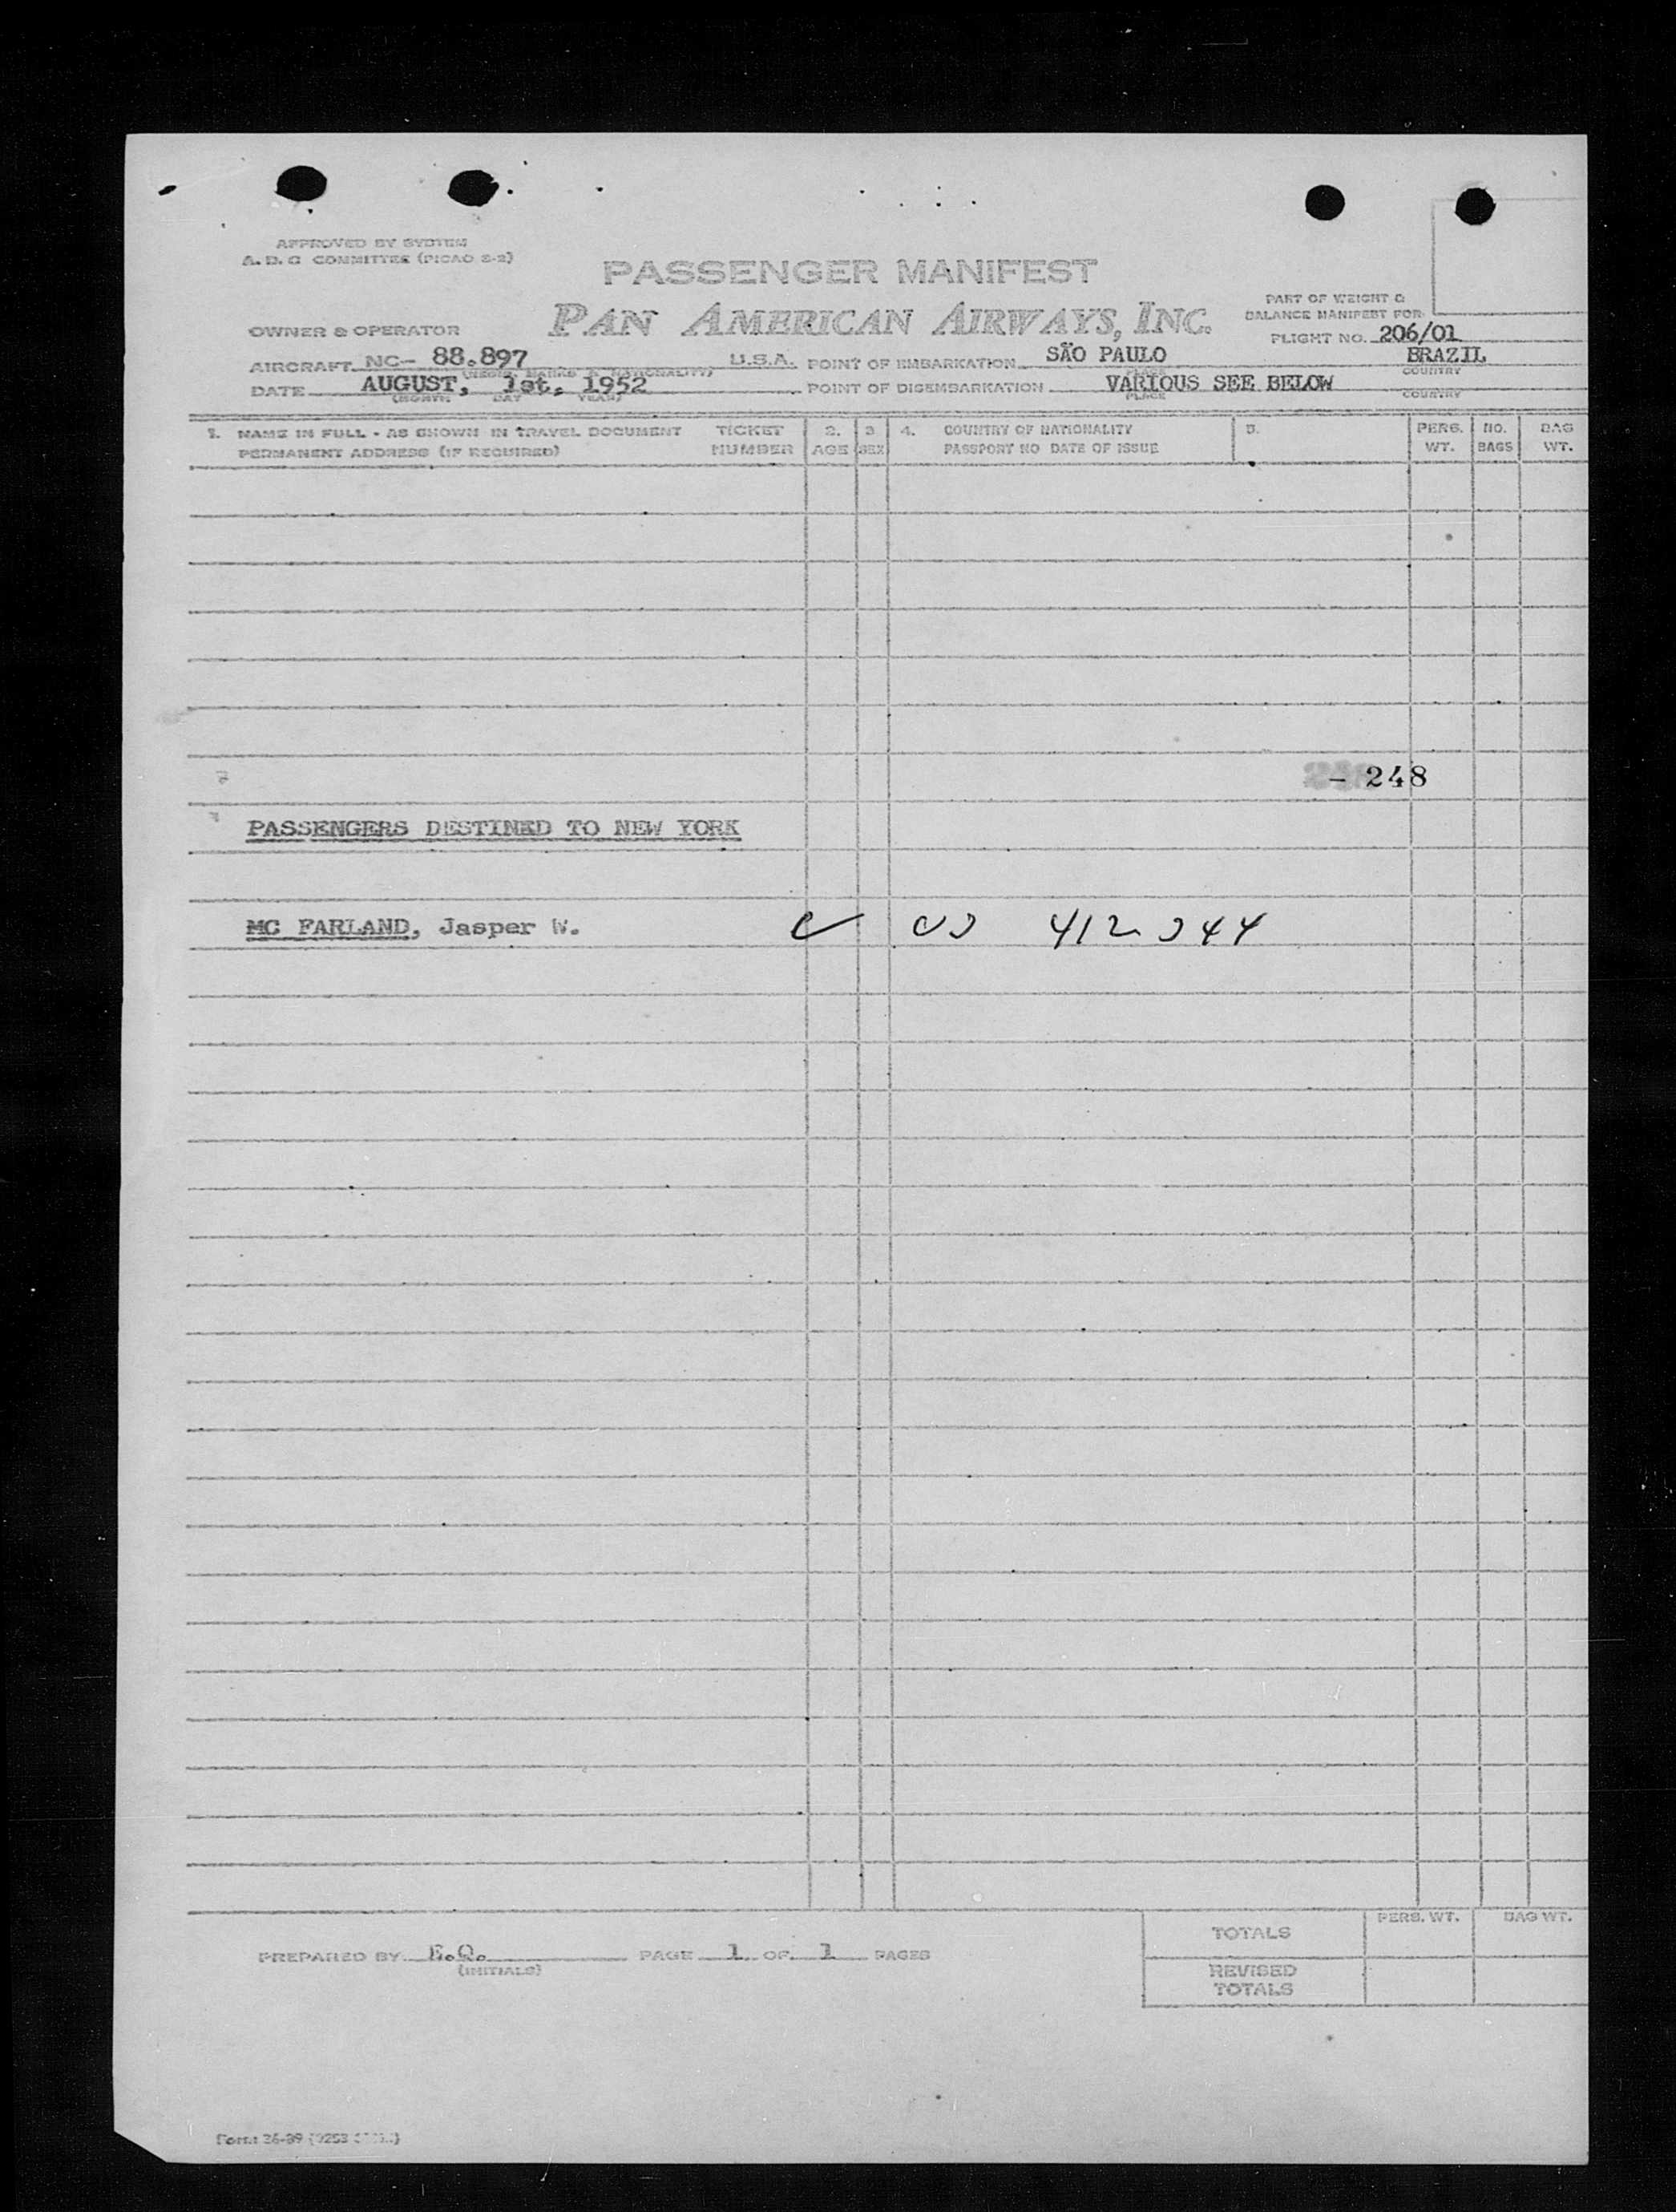 APPROVED BY SYSTEM
A. D. C COMMITTEE (PICAO 2-2)
PASSENGER MANIFEST
PAN AMERICAN AIRWAYS, INC.
PART OF WEIGHT &
BALANCE MANIFEST FOR
OWNER & OPERATOR
FLIGHT NO. 206/01
AIRCRAFT NC- 88.897 U.S.A. POINT OF EMBARKATION SÃO PAULO BRAZIL
(REGIS. MARKS & NATIONALITY) PLACE COUNTRY
DATE AUGUST, 1st, 1952 POINT OF DISEMBARKATION VARIOUS SEE BELOW
(MONTH DAY YEAR) PLACE COUNTRY
1. NAME IN FULL - AS SHOWN IN TRAVEL DOCUMENT TICKET 2. 3 4. COUNTRY OF NATIONALITY 5. PERS. NO. BAG
PERMANENT ADDRESS (IF REQUIRED) NUMBER AGE SEX PASSPORT NO DATE OF ISSUE WT. BAGS WT.
- 248
PASSENGERS DESTINED TO NEW YORK
MC FARLAND, Jasper W. 412344
PERS. WT. BAG WT.
TOTALS
PREPARED BY E.Q. PAGE 1 OF 1 PAGES
(INITIALS)
REVISED
TOTALS
Form 36-39